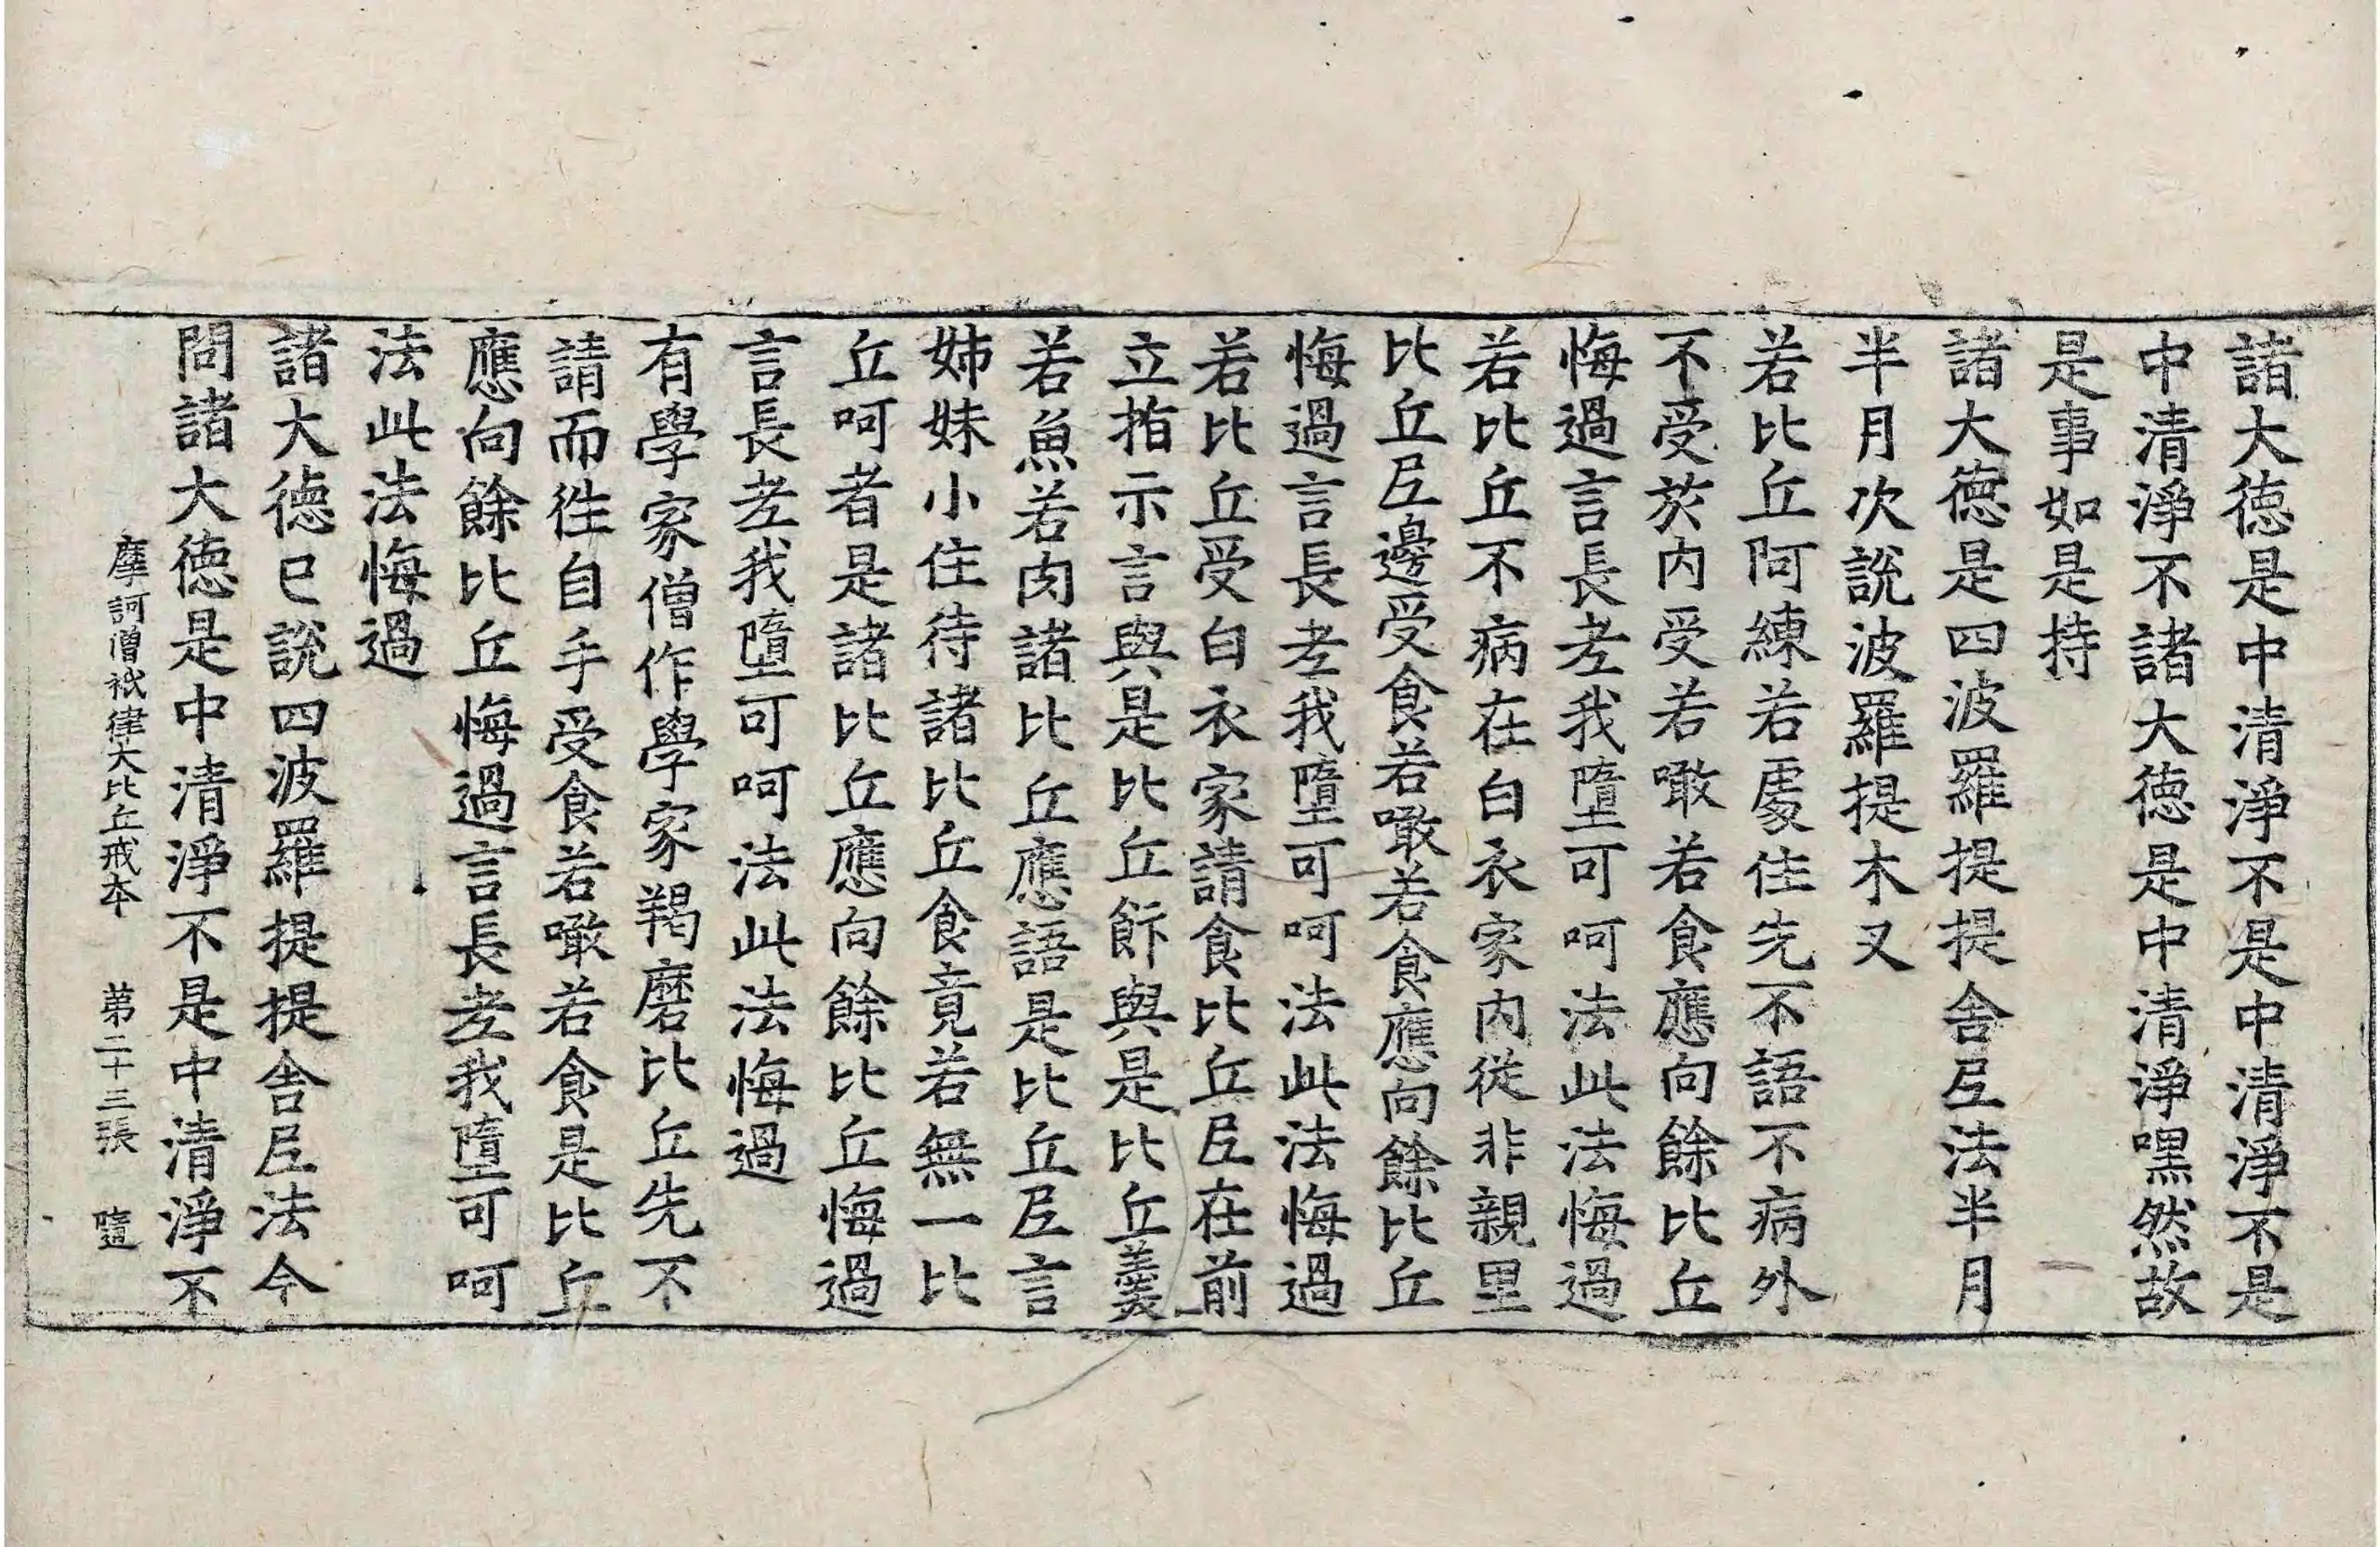 諸大德是中清淨不是中清淨不是
中清淨不諸大德是中清淨嘿然故
是事如是持
諸大德是四波羅提提舍𡰱法半月
半月次說波羅提木叉
若比丘阿練若處住先不語不病外
不受於內受若噉若食應向餘比丘
悔過言長老我墮可呵法此法悔過
若比丘不病在白衣家內從非親里
比丘𡰱邊受食若噉若食應向餘比丘
悔過言長老我墮可呵法此法悔過
若比丘受白衣家請食比丘𡰱在前
立指示言與是比丘飰與是比丘羹
若魚若肉諸比丘應語是比丘𡰱言
姊妹小住待諸比丘食竟若無一比
丘呵者是諸比丘應向餘比丘悔過
言長老我墮可呵法此法悔過
有學家僧作學家羯磨比丘先不
請而徃自手受食若噉若食是比丘
應向餘比丘悔過言長老我墮可呵
法此法悔過
諸大德已說四波羅提提舍𡰱法今
問諸大德是中清淨不是中清淨不
摩訶僧祇律大比丘戒本 第二十三張 隨